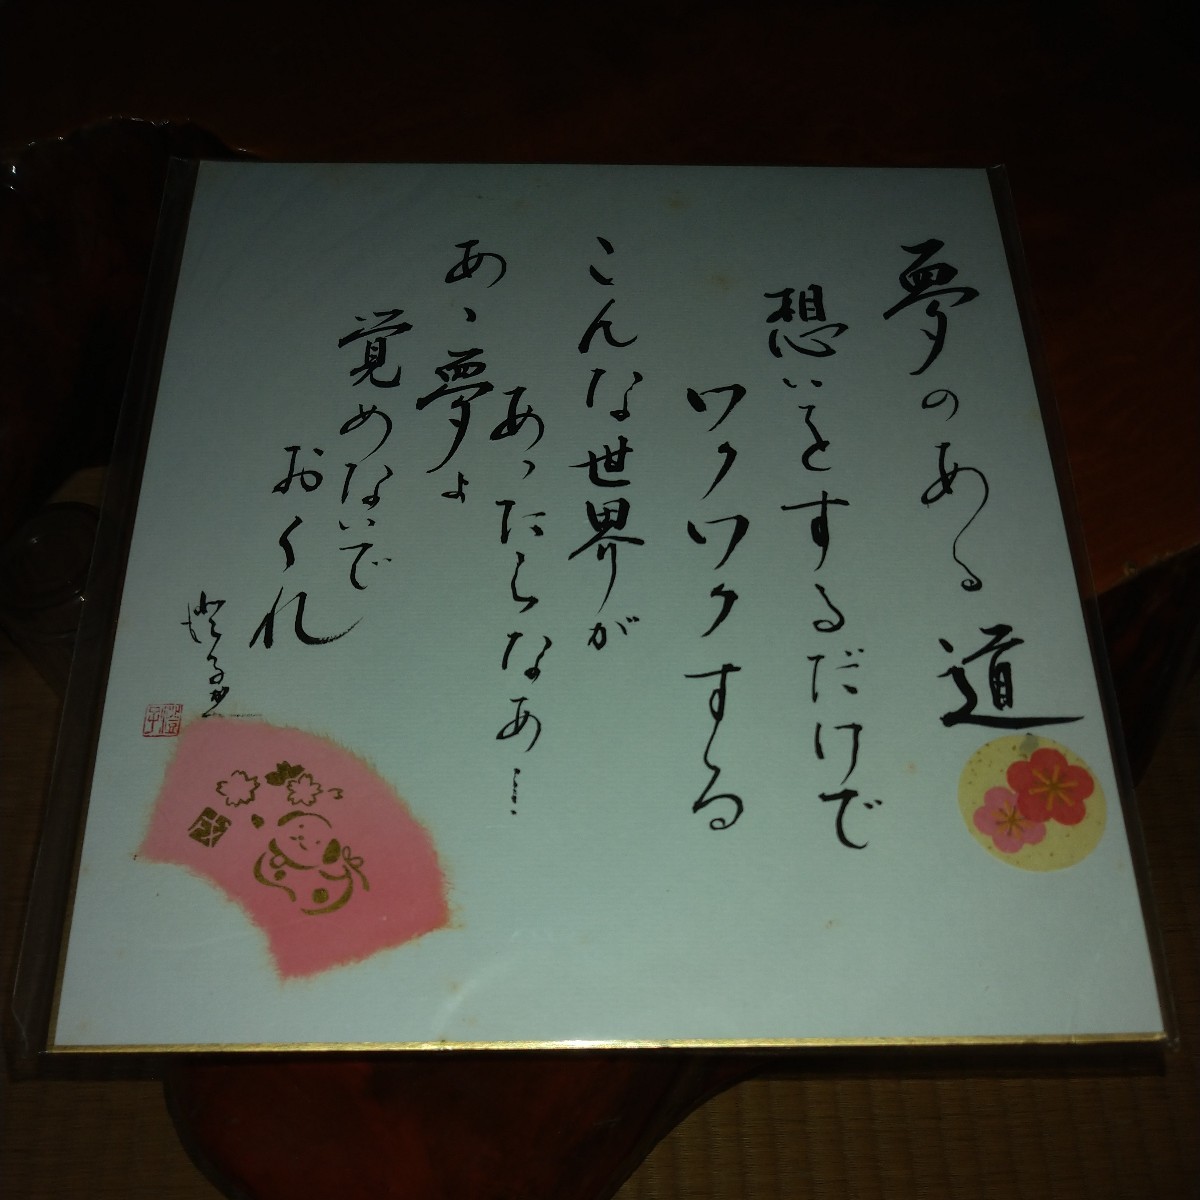 夢のある道
想いをするだけで
ワクワクする
こんな世界が
あったらなあ…
あゝ夢よ
覚めないで
おくれ
澄子書
澄子
戌